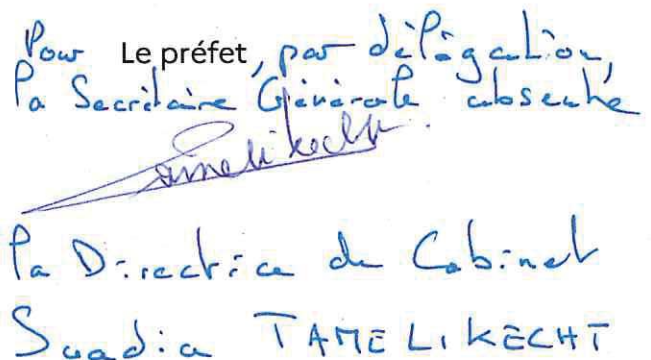 Pour Le préfet, par délégation,
la Secrétaire Générale absente
Tamelikecht
la Directrice de Cabinet
Saadia TAMELIKECHT